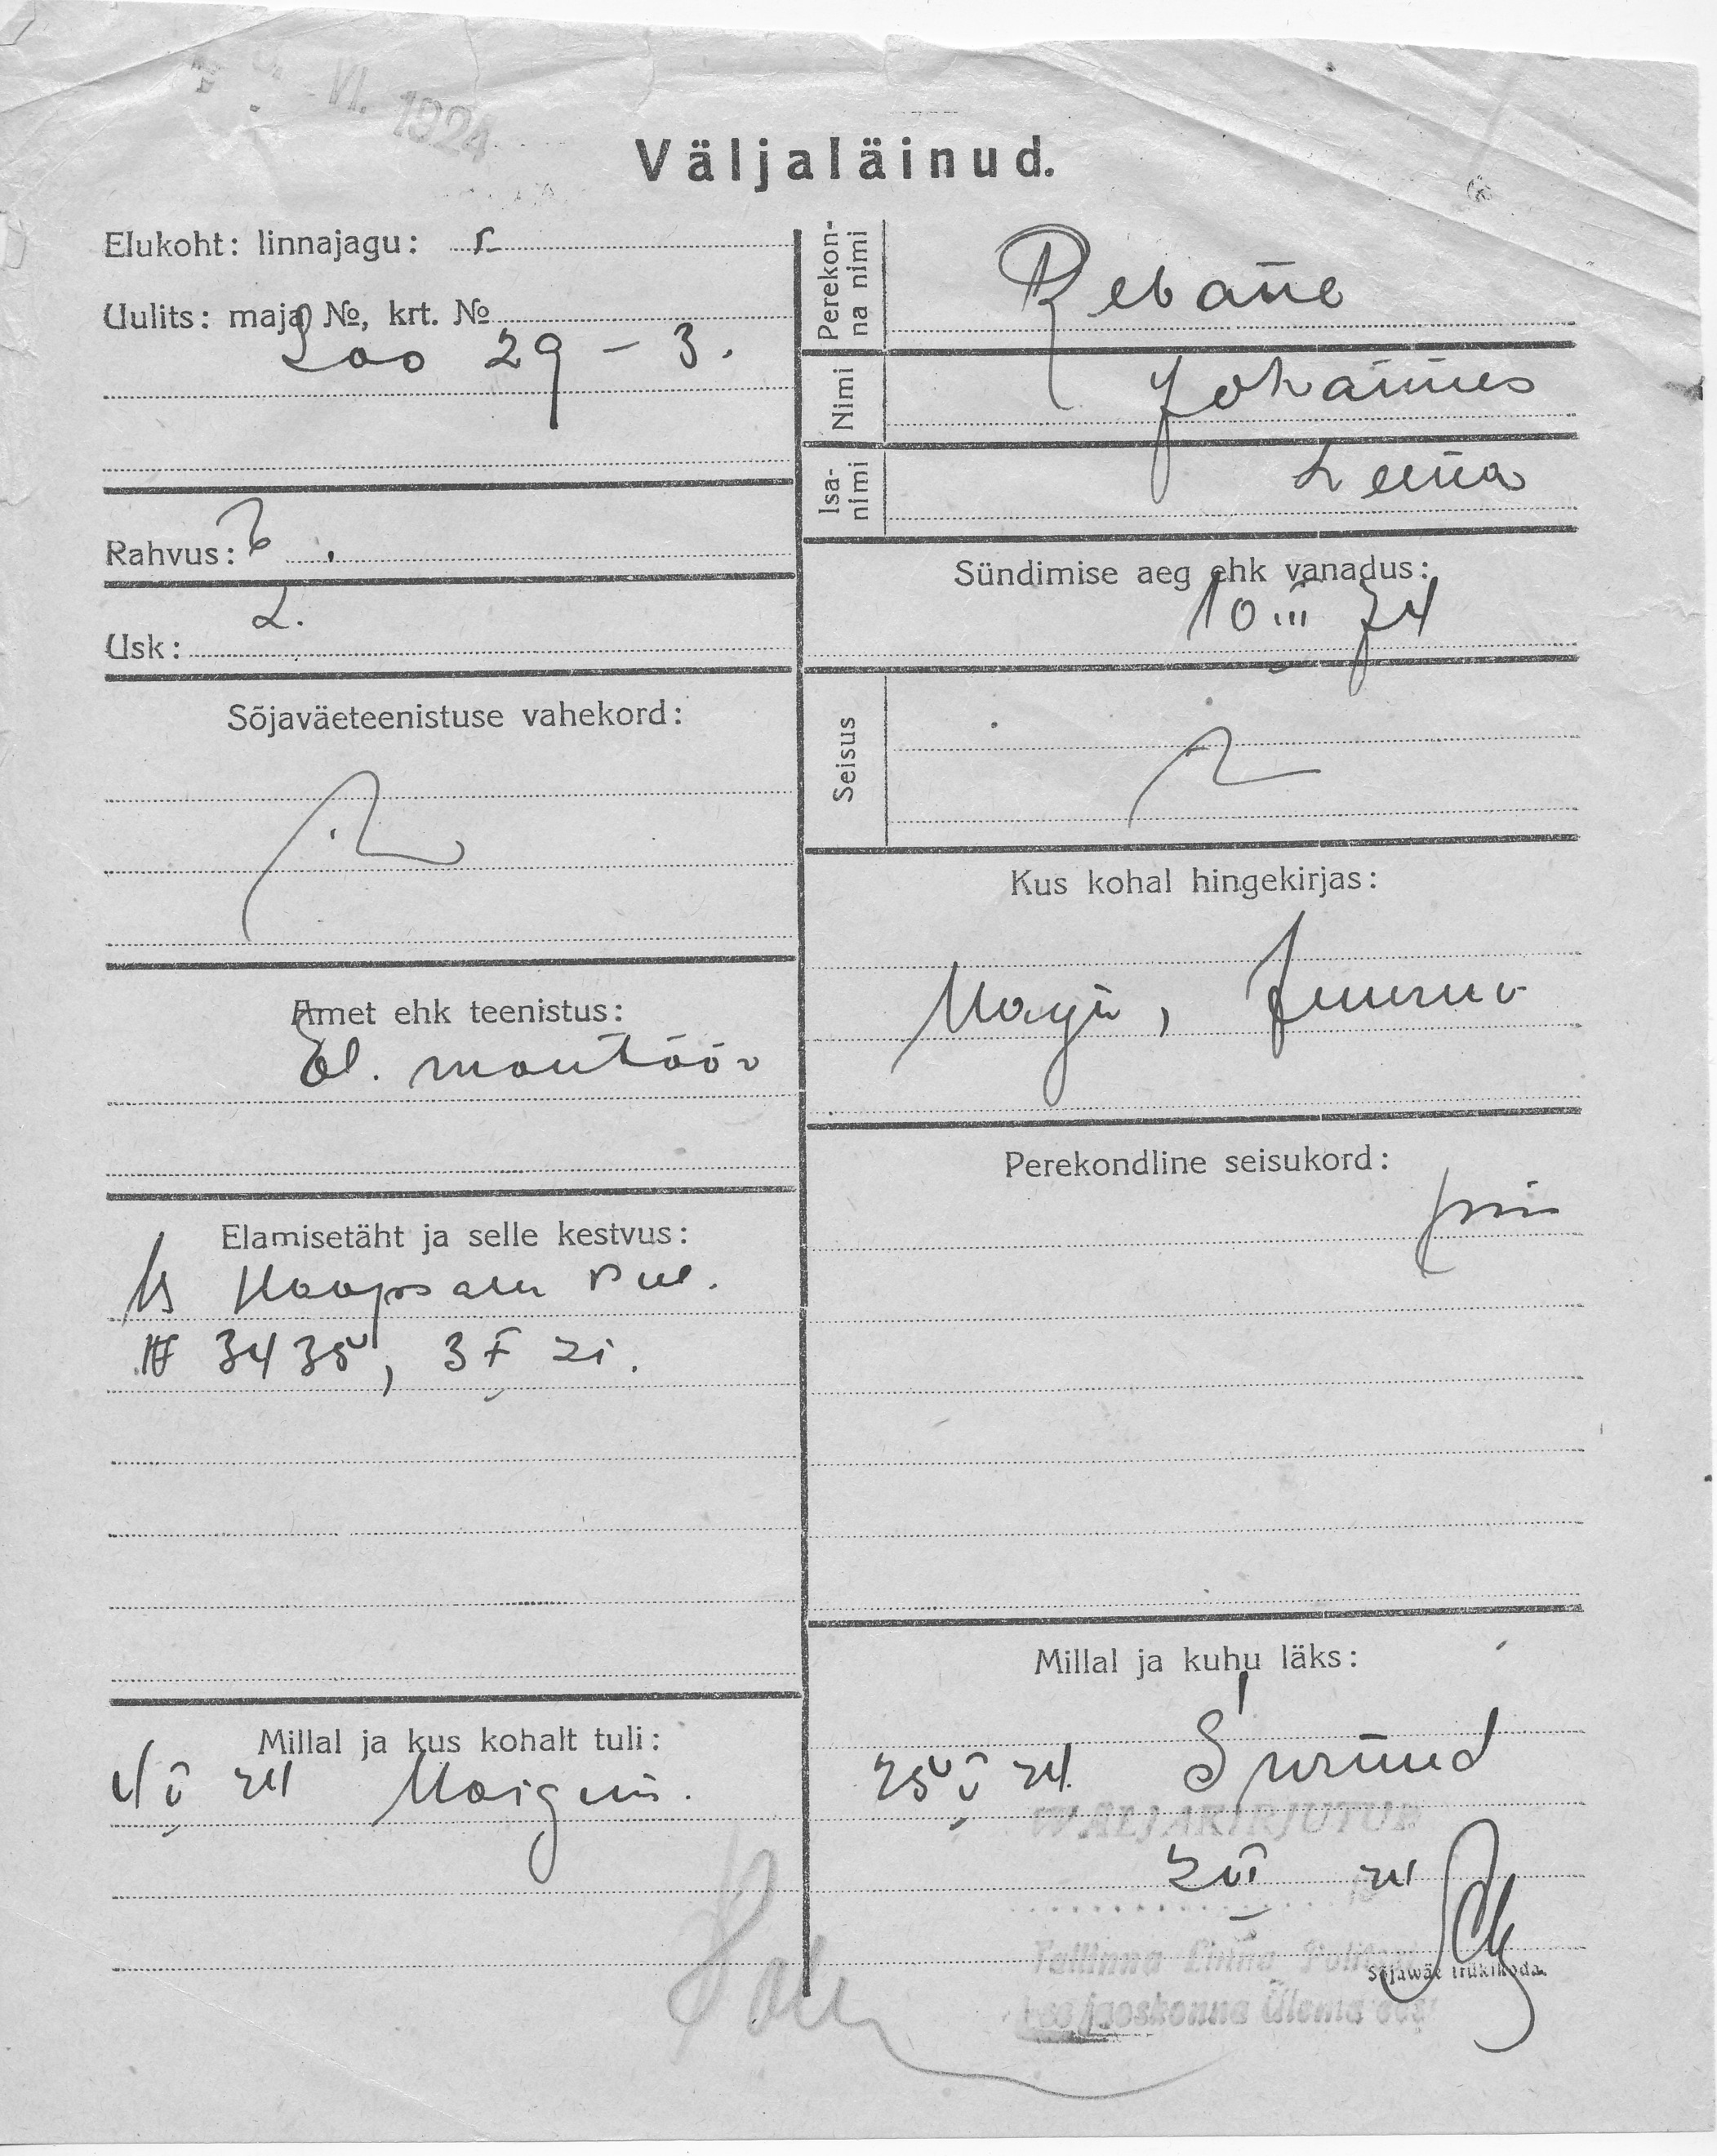 VI. 1924
Väljaläinud.
Elukoht: linnajagu:
Uulits: maja №, krt. №
Loo 29 - 3.
Rahvus: E.
L.
Usk:
Sõjaväeteenistuse vahekord:
Amet ehk teenistus:
El. montöör
Elamisetäht ja selle kestvus:
Haapsalu
№ 3435, 3 I 21.
Millal ja kus kohalt tuli:
4 V 24
Perekon-
na nimi
Rebane
Nimi
Johannes
Isa-
nimi
Leena
Sündimise aeg ehk vanadus:
10 III 74
Seisus
Kus kohal hingekirjas:
Perekondline seisukord:
Millal ja kuhu läks:
25 V 24. Surnud
WÄLJAKIRJUTUD
2 VI 24
Tallinna Linna Politsei
jaoskonna Ülema
Sõjawäe trükikoda.